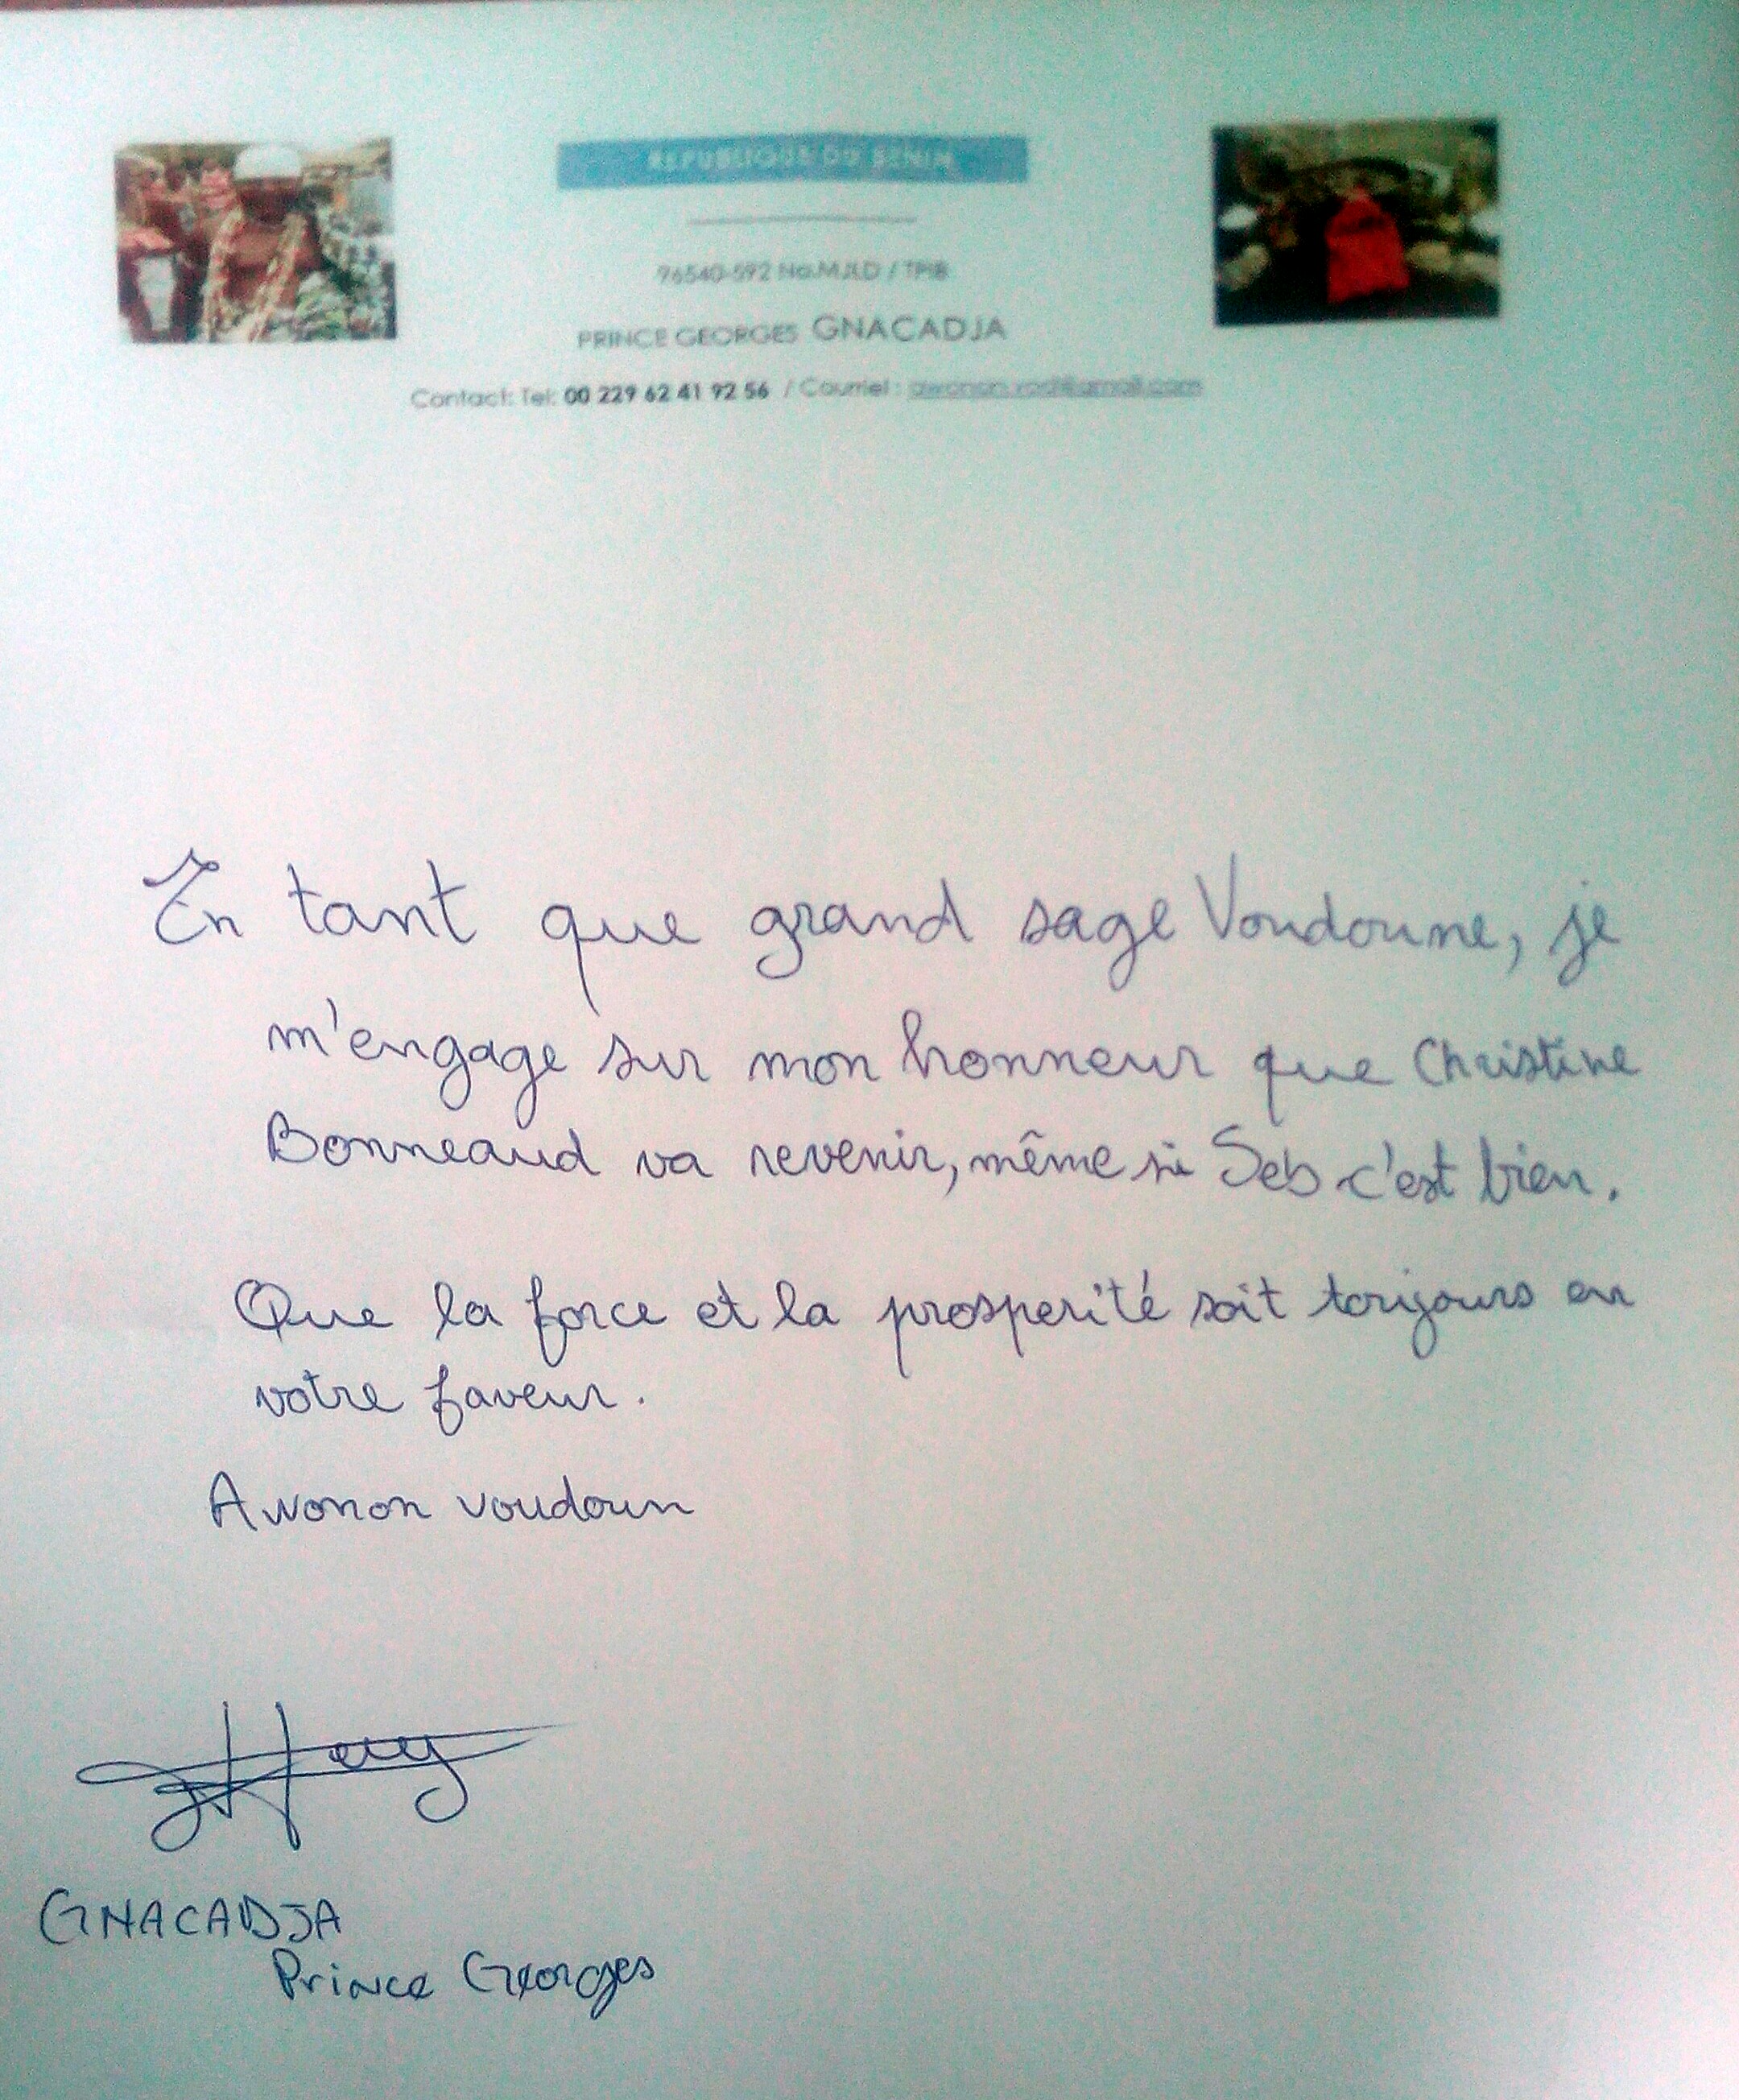 REPUBLIQUE DU BENIN
PRINCE GEORGES GNACADJA
Contact: Tel: 00 229 62 41 92 56 / Courriel :
En tant que grand sage Voudoune, je
m'engage sur mon honneur que Christine
Bonneaud va revenir, même si Seb c'est bien.
Que la force et la prosperité soit toujours en
votre faveur.
Awonon voudoun
GNACADJA
Prince Georges